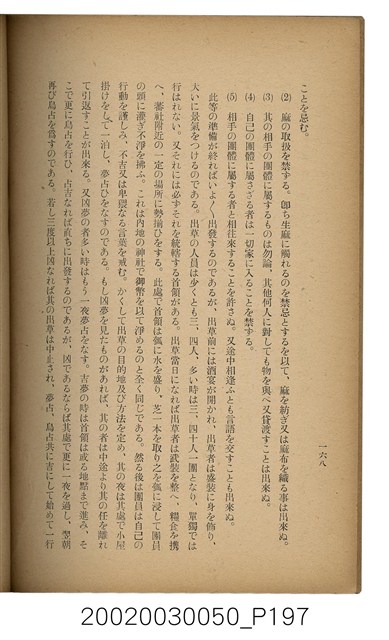 一六八
ことを忌む。
(2) 麻の取扱を禁ずる。卽ち生麻に觸れるのを禁忌とするを以て、麻を紡ぎ又は麻布を織る事は出來ぬ。
(3) 其の相手の團體に屬するものは勿論、其他何人に對しても物を與へ又貸渡すことは出來ぬ。
(4) 自己の團體に屬さざる者は一切家に入ることを禁ずる。
(5) 相手の團體に屬する者と相往來することを許さぬ。又途中相逢ふとも言語を交すことも出來ぬ。
此等の準備が終ればいよ〱出發するのであるが、出草前には酒宴が開かれ、出草者は盛裝に身を飾り、
大いに景氣をつけるのである。出草の人員は少くとも三、四人、多い時は三、四十人一團となり、單獨では
行はれない。又それには必ずそれを統轄する首領がある。出草當日になれば出草者は武裝を整へ、糧食を携
へ、蕃社附近の一定の場所に勢揃ひをする。此處で首領は瓠に水を盛り、芝一本を取り之を瓠に浸して團員
の頭に灌ぎ不淨を拂ふ。これは內地の神社で御幣を以て淨めるのと全く同じである。然る後は團員は自己の
行動を謹しみ、不吉又は卑猥なる言葉を戒む。かくして出草の目的地及び方法を定め、其の夜は其處で小屋
掛けをして一泊し、夢占ひをなすのである。もし凶夢を見たものがあれば、其の者は中途より其の任を離れ
て引返すことが出來る。又凶夢の者多い時はもう一夜夢占をなす。吉夢の時は首領は或る地點まで進み、そ
こで更に鳥占を行ひ、占吉なれば直ちに出發するのであるが、凶であるならば其處で更に一夜を過し、翌朝
再び鳥占を爲すのである。若し三度以上凶なれば其の出草は中止され、夢占、鳥占共に吉にして始めて一行
20020030050_P197